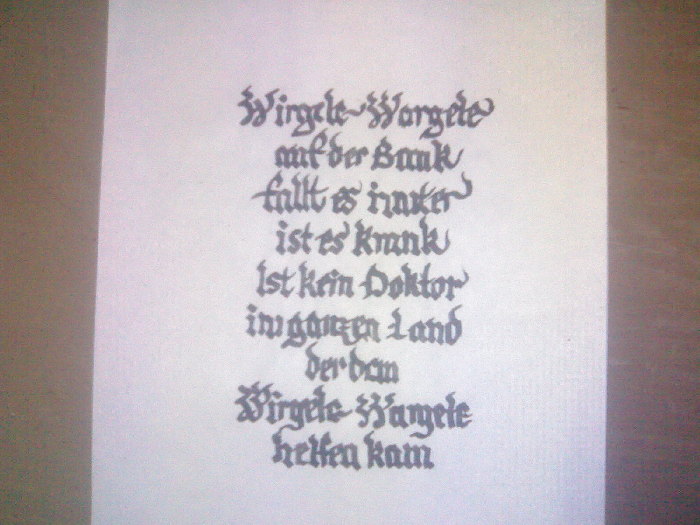 Wirgele-Wargele
auf der Bank
fällt es hinter
ist es krank
Ist kein Doktor
im ganzen Land
der dem
Wirgele-Wargele
helfen kann